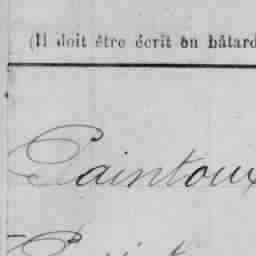 (Il doit être écrit en bâtard
Paintoux